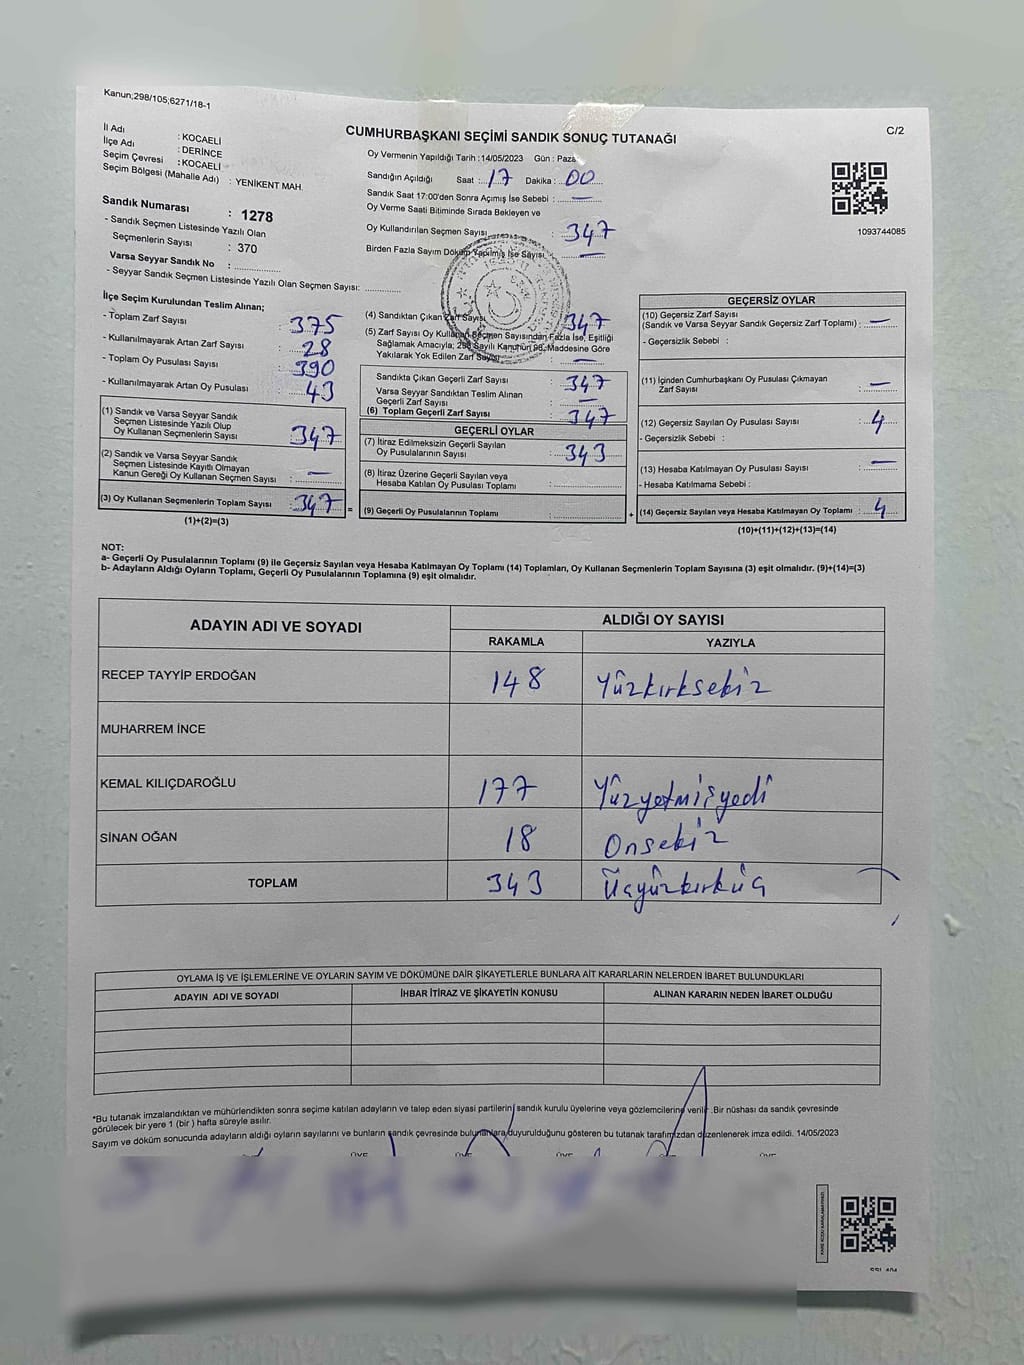 Kanun;298/105;6271/18-1
C/2
CUMHURBAŞKANI SEÇİMİ SANDIK SONUÇ TUTANAĞI
İl Adı : KOCAELİ
İlçe Adı : DERİNCE
Seçim Çevresi : KOCAELİ
Seçim Bölgesi (Mahalle Adı) : YENİKENT MAH.
Sandık Numarası : 1278
- Sandık Seçmen Listesinde Yazılı Olan
Seçmenlerin Sayısı : 370
Varsa Seyyar Sandık No : ..............
- Seyyar Sandık Seçmen Listesinde Yazılı Olan Seçmen Sayısı: ............
Oy Vermenin Yapıldığı Tarih :14/05/2023 Gün : Pazar
Sandığın Açıldığı Saat : 17 Dakika : 00
Sandık Saat 17:00'den Sonra Açımış İse Sebebi : —
Oy Verme Saati Bitiminde Sırada Bekleyen ve
Oy Kullandırılan Seçmen Sayısı : 347
Birden Fazla Sayım Döküm Yapılmış İse Sayısı : —
1093744085
İlçe Seçim Kurulundan Teslim Alınan;
- Toplam Zarf Sayısı : 375
- Kullanılmayarak Artan Zarf Sayısı : 28
- Toplam Oy Pusulası Sayısı : 390
- Kullanılmayarak Artan Oy Pusulası : 43
(1) Sandık ve Varsa Seyyar Sandık
Seçmen Listesinde Yazılı Olup
Oy Kullanan Seçmenlerin Sayısı : 347
(2) Sandık ve Varsa Seyyar Sandık
Seçmen Listesinde Kayıtlı Olmayan
Kanun Gereği Oy Kullanan Seçmen Sayısı : —
(3) Oy Kullanan Seçmenlerin Toplam Sayısı : 347 =
(1)+(2)=(3)
(4) Sandıktan Çıkan Zarf Sayısı : 347
(5) Zarf Sayısı Oy Kullanan Seçmen Sayısından Fazla İse, Eşitliği
Sağlamak Amacıyla; 298 Sayılı Kanunun 98. Maddesine Göre
Yakılarak Yok Edilen Zarf Sayısı : —
Sandıkta Çıkan Geçerli Zarf Sayısı : 347
Varsa Seyyar Sandıktan Teslim Alınan
Geçerli Zarf Sayısı : —
(6) Toplam Geçerli Zarf Sayısı : 347
GEÇERLİ OYLAR
(7) İtiraz Edilmeksizin Geçerli Sayılan
Oy Pusulalarının Sayısı : 343
(8) İtiraz Üzerine Geçerli Sayılan veya
Hesaba Katılan Oy Pusulası Toplamı : ..............
(9) Geçerli Oy Pusulalarının Toplamı : .............. +
GEÇERSİZ OYLAR
(10) Geçersiz Zarf Sayısı
(Sandık ve Varsa Seyyar Sandık Geçersiz Zarf Toplamı) : —
- Geçersizlik Sebebi :
(11) İçinden Cumhurbaşkanı Oy Pusulası Çıkmayan
Zarf Sayısı : —
(12) Geçersiz Sayılan Oy Pusulası Sayısı : 4
- Geçersizlik Sebebi :
(13) Hesaba Katılmayan Oy Pusulası Sayısı : —
- Hesaba Katılmama Sebebi :
(14) Geçersiz Sayılan veya Hesaba Katılmayan Oy Toplamı : 4
(10)+(11)+(12)+(13)=(14)
NOT:
a- Geçerli Oy Pusulalarının Toplamı (9) ile Geçersiz Sayılan veya Hesaba Katılmayan Oy Toplamı (14) Toplamları, Oy Kullanan Seçmenlerin Toplam Sayısına (3) eşit olmalıdır. (9)+(14)=(3)
b- Adayların Aldığı Oyların Toplamı, Geçerli Oy Pusulalarının Toplamına (9) eşit olmalıdır.
ADAYIN ADI VE SOYADI
ALDIĞI OY SAYISI
RAKAMLA YAZIYLA
RECEP TAYYİP ERDOĞAN 148 Yüzkırksekiz
MUHARREM İNCE
KEMAL KILIÇDAROĞLU 177 Yüzyetmişyedi
SİNAN OĞAN 18 Onsekiz
TOPLAM 343 Üçyüzkırküç
OYLAMA İŞ VE İŞLEMLERİNE VE OYLARIN SAYIM VE DÖKÜMÜNE DAİR ŞİKAYETLERLE BUNLARA AİT KARARLARIN NELERDEN İBARET BULUNDUKLARI
ADAYIN ADI VE SOYADI İHBAR İTİRAZ VE ŞİKAYETİN KONUSU ALINAN KARARIN NEDEN İBARET OLDUĞU
*Bu tutanak imzalandıktan ve mühürlendikten sonra seçime katılan adayların ve talep eden siyasi partilerin sandık kurulu üyelerine veya gözlemcilerine verilir. Bir nüshası da sandık çevresinde
görülecek bir yere 1 (bir ) hafta süreyle asılır.
Sayım ve döküm sonucunda adayların aldığı oyların sayılarını ve bunların sandık çevresinde bulunanlara duyurulduğunu gösteren bu tutanak tarafımızdan düzenlenerek imza edildi. 14/05/2023